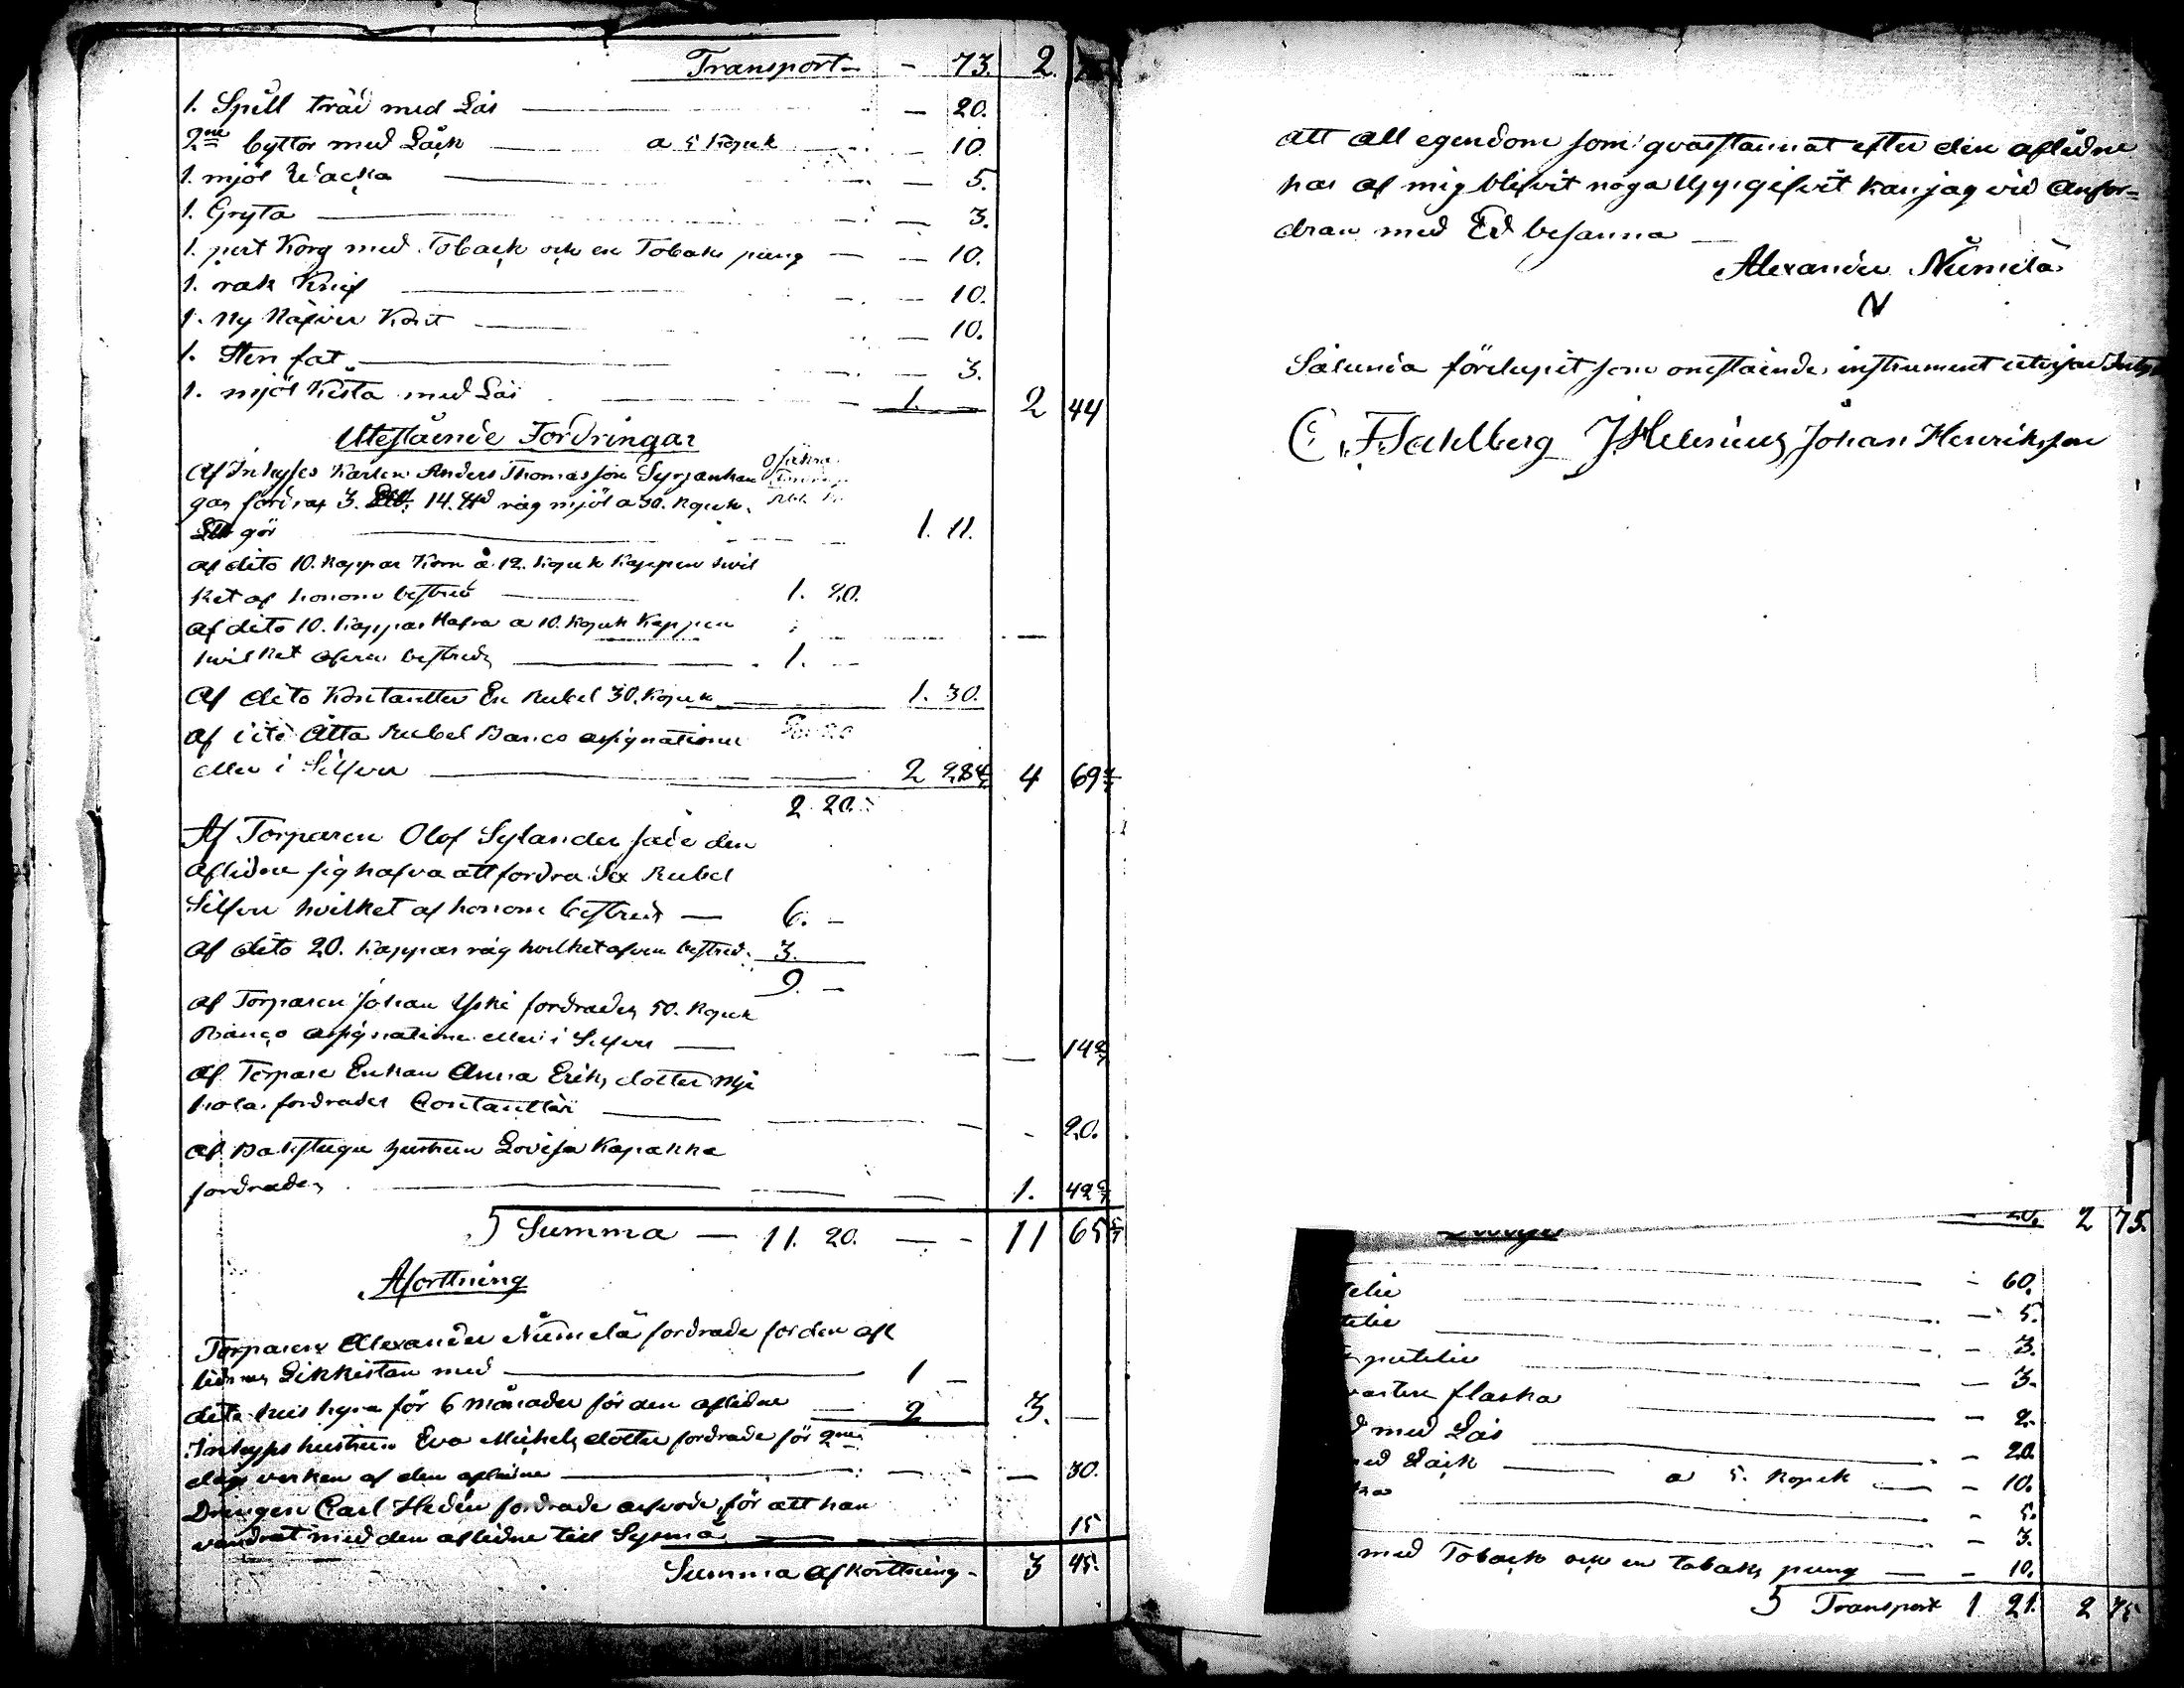 Transport — - 73. 2.
1. Spill träd med Lås — 20.
2ne byttor med Låck — a 5 Kopek — 10
1. mjöl Wacka — 5.
1. Gryta — 3.
1. pert Korg med Toback och en Tobaks pung — 10.
1. rak Knif — 10.
1. Ny Näfver Kont — 10.
1. Sten fat — 3.
1. mjöl Kista med Lås — 1. — 2 44
Utestående Fordringar
Af Inhyses Karlen Anders Thomasson Osäkra
gas fordras 3. 14. råg mjöl a 30. Kopek
gör — 1. 11.
af dito 10. Kappar Korn à 12. Kopek Kappen hvil
ket af honom bestred — 1. 20.
Af dito 10. Kappar Hafra a 10. Kopek Kappen
hvilket äfven bestreds — 1. —
Af dito Kontantter En Rubel 30. Kopek — 1. 30.
Af dito Åtta Rubel Banco assignationer
eller i Silfver — 2 28 4/7 4 69 4/7
2 20.
Af Torparen Olof Sylander sade den
aflidne sig hafva att fordra Sex Rubel
Silfver hvilket af honom bestreds — 6. —
af dito 20. Kappar råg hvilket äfven bestred. 3.
9. —
af Torparen Johan fordrades 50. Kopek
Banco assignationer eller i Silfver — — 14 2/7
af Torpare Enkan Anna Eriks dotter
fordrades Contantter — - 20.
af Backstugu hustrun Lovisa Kapakka
fordrades — 1. 42 6/7
Summa — 11. 20. — 11 65 5/7
Afkorttning
Torparen Alexander Niemelä fordrade for den afl
lidnes Likkistan med — 1 —
dito hus hyra för 6 månader för den aflidne — 2 3. —
Inhyses hustrun Eva Michels dotter fordrade för 2ne
dags verken af den aflidne — — 30.
Drengen Carl Hedén fordrade arfvode för att han
vandrat med den aflidne till Sysmä — 15
Summa afkorttning - 3 45.
att all egendom som qvarstannat efter den aflidne
har af mig blifvit noga uppgifvit kan jag vid anfor-
dran med Ed besanna —
Alexander Niemelä
N
Sålunda förelupit som onestående instrument utvisar
C. F. Sahlberg J Helenius Johan Henriksson
20. 2 75.
— 60.
telie — 5.
telie — 3.
putelie — 3.
qvarters flaska — 2.
d med Lås — 20.
ed Låck — a 5. Kopek — 10.
ka — 5.
— 3.
med Toback och en tobaks pung — 10.
Transport 1 21. 2 75